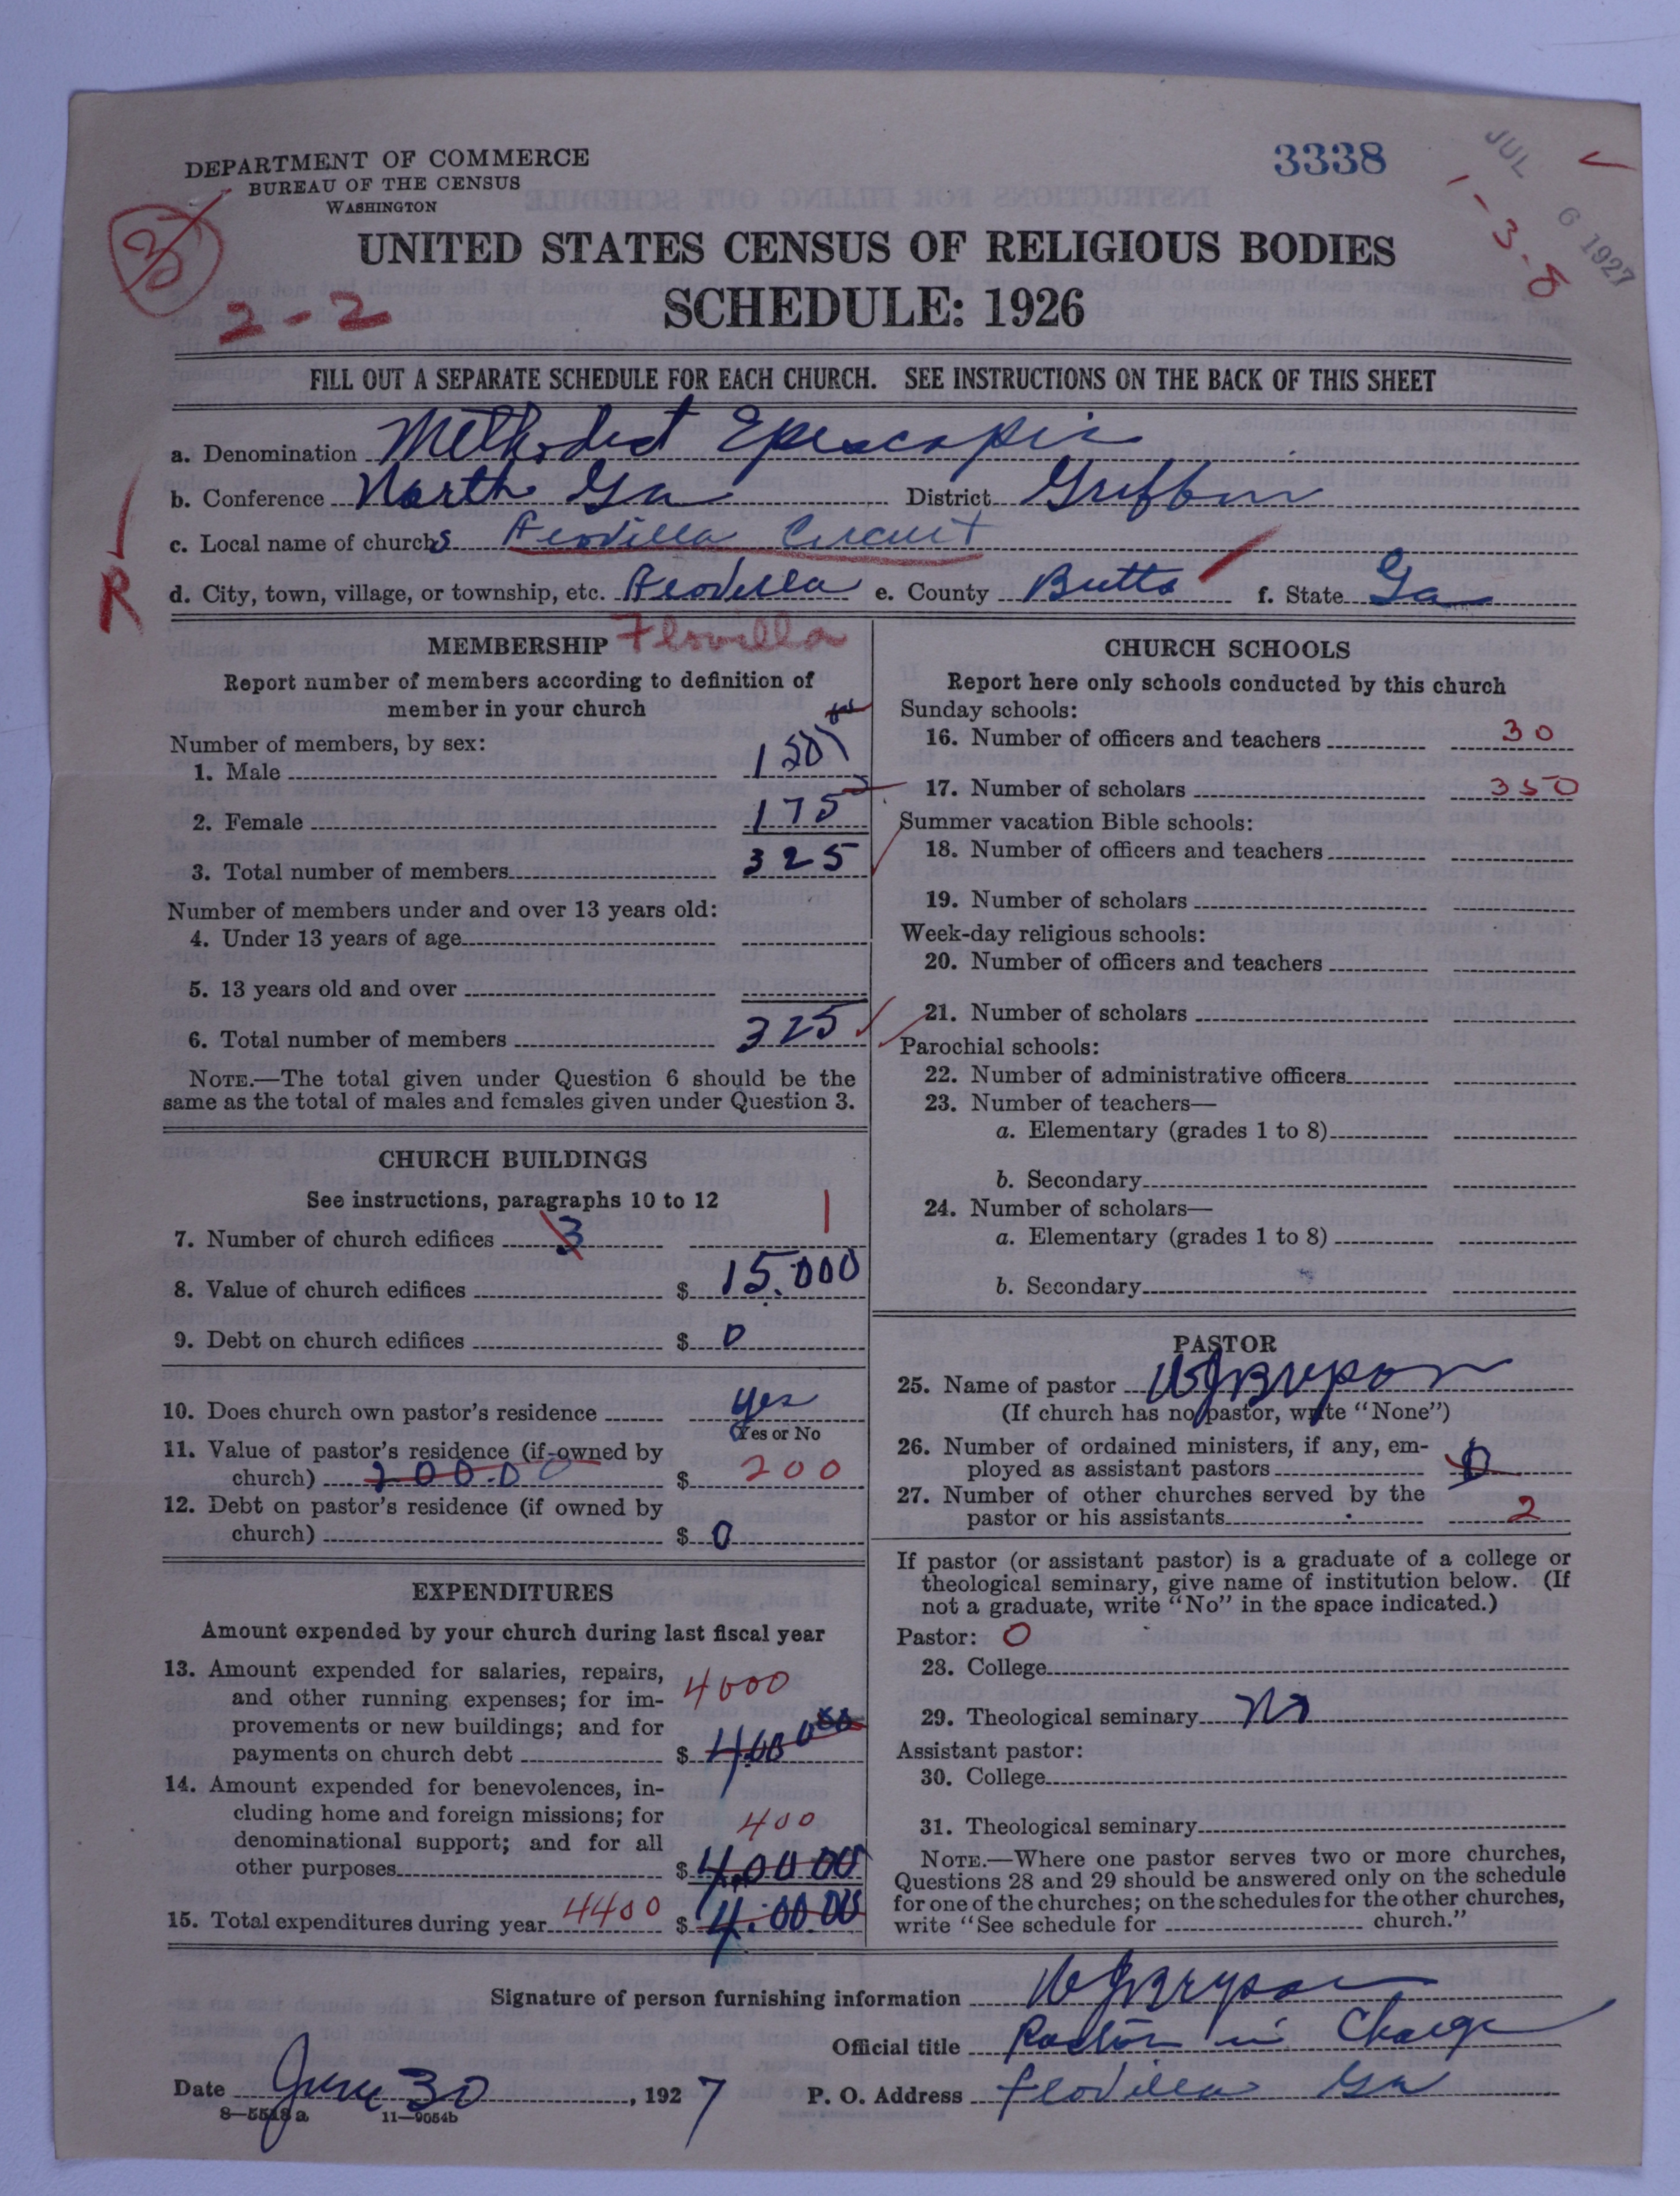 DEPARTMENT OF COMMERCE
BUREAU OF THE CENSUS
WASHINGTON
3338
JUL 6 1927
1-3-8
2-2
UNITED STATES CENSUS OF RELIGIOUS BODIES
SCHEDULE: 1926
FILL OUT A SEPARATE SCHEDULE FOR EACH CHURCH. SEE INSTRUCTIONS ON THE BACK OF THIS SHEET
a. Denomination Methodist
b. Conference North Ga District Griffin
c. Local name of churchs Flovilla Circuit
R
d. City, town, village, or township, etc. Flovilla e. County Butts f. State Ga
MEMBERSHIP Flovilla
Report number of members according to definition of
member in your church
Number of members, by sex:
1. Male 150
2. Female 175
3. Total number of members 325
Number of members under and over 13 years old:
4. Under 13 years of age
5. 13 years old and over
6. Total number of members 325
NOTE.—The total given under Question 6 should be the
same as the total of males and females given under Question 3.
CHURCH BUILDINGS
See instructions, paragraphs 10 to 12
7. Number of church edifices 3 1
8. Value of church edifices $ 15.000
9. Debt on church edifices $ 0
10. Does church own pastor's residence yes
Yes or No
11. Value of pastor's residence (if owned by
church) 200.00 $ 200
12. Debt on pastor's residence (if owned by
church) $ 0
EXPENDITURES
Amount expended by your church during last fiscal year
13. Amount expended for salaries, repairs,
and other running expenses; for im-
provements or new buildings; and for
payments on church debt $ 4000
14. Amount expended for benevolences, in-
cluding home and foreign missions; for
denominational support; and for all
other purposes $ 400 400 00
15. Total expenditures during year 4400 $ 4.00.00
CHURCH SCHOOLS
Report here only schools conducted by this church
Sunday schools:
16. Number of officers and teachers 30
17. Number of scholars 350
Summer vacation Bible schools:
18. Number of officers and teachers
19. Number of scholars
Week-day religious schools:
20. Number of officers and teachers
21. Number of scholars
Parochial schools:
22. Number of administrative officers
23. Number of teachers—
a. Elementary (grades 1 to 8)
b. Secondary
24. Number of scholars—
a. Elementary (grades 1 to 8)
b. Secondary
PASTOR
25. Name of pastor W J Bryson
(If church has no pastor, write "None")
26. Number of ordained ministers, if any, em-
ployed as assistant pastors 0
27. Number of other churches served by the
pastor or his assistants 2
If pastor (or assistant pastor) is a graduate of a college or
theological seminary, give name of institution below. (If
not a graduate, write "No" in the space indicated.)
Pastor: 0
28. College
29. Theological seminary No
Assistant pastor:
30. College
31. Theological seminary
NOTE.—Where one pastor serves two or more churches,
Questions 28 and 29 should be answered only on the schedule
for one of the churches; on the schedules for the other churches,
write "See schedule for church."
Signature of person furnishing information W J Bryson
Official title Pastor in Charge
Date June 30, 1927 P. O. Address Flovilla Ga
8—5518 a 11—9054b